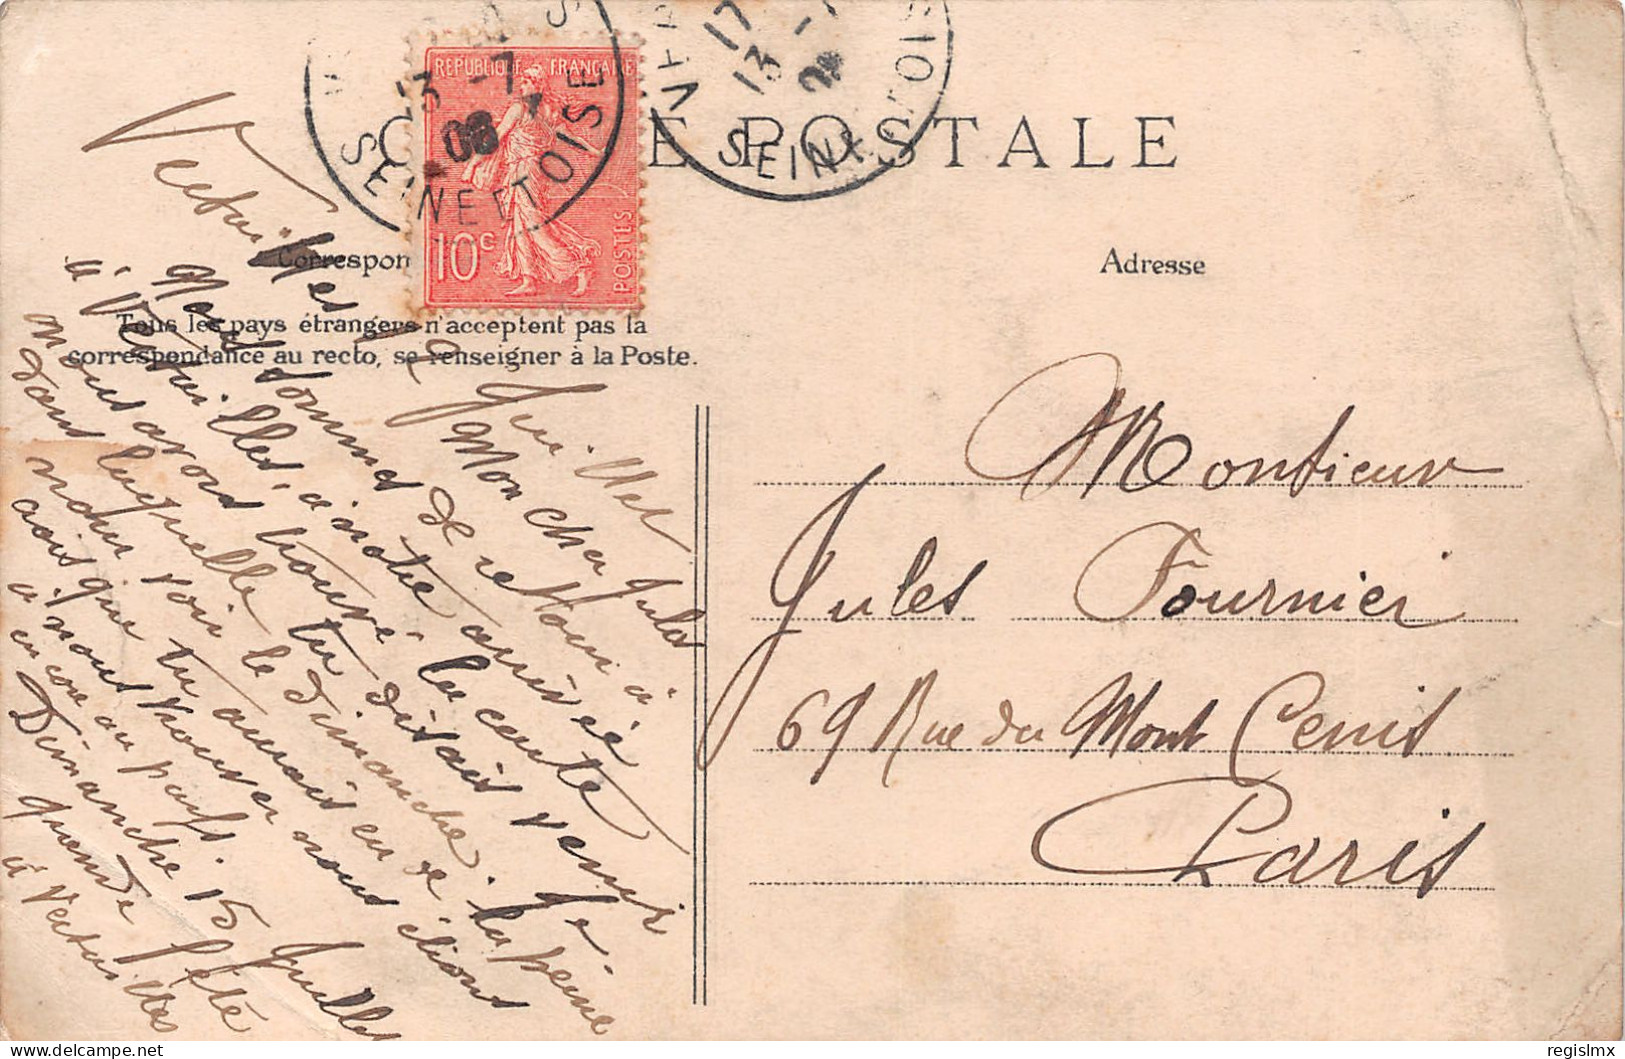 CARTE POSTALE
REPUBLIQUE FRANÇAISE
10c
POSTES
13 -7
08
SEINE ET OISE
17
13 -7
SEINE OIS
Correspon
Adresse
Tous les pays étrangers n'acceptent pas la
correspondance au recto, se renseigner à la Poste.
Versailles le Juillet
Mon cher Jules
Nous sommes de retour à
à Versailles, a notre arrivée
nous avons trouvé la carte
dans laquelle tu disais venir
nous voir le dimanche. Je
crois que tu aurais eu de la peine
a nous trouver nous étions
encore au pays.
Dimanche 15 Juillet
grande fête
à Versailles
Monsieur
Jules Fournier
69 Rue du Mont Cenis
Paris
regislmx